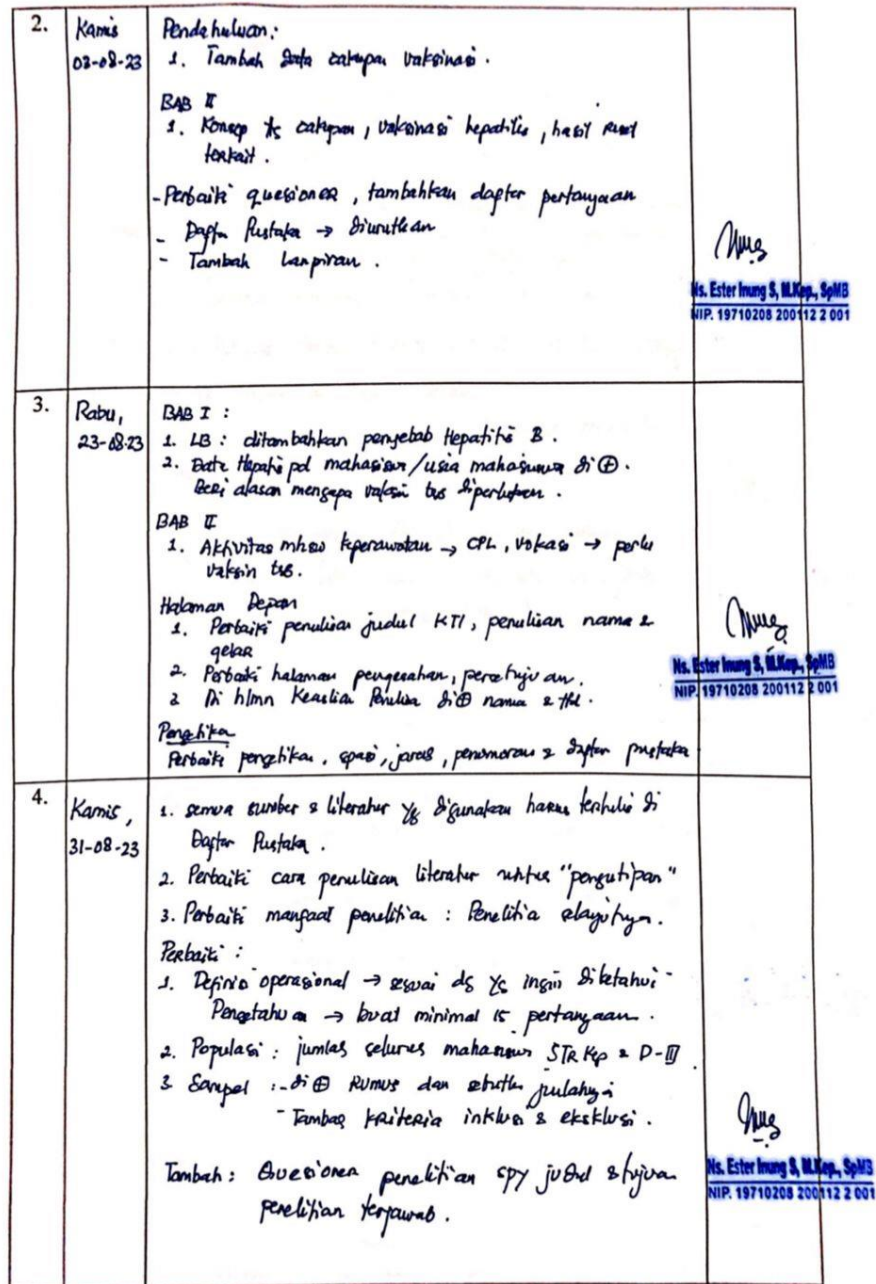 2.
Kamis
03-08-23
Pendahuluan:
1. Tambah data cakupan vaksinasi.
BAB II
1. Konsep ttg cakupan, vaksinasi hepatitis, hasil riset
terkait.
- Perbaiki quesioner, tambahkan daftar pertanyaan
- Daftar Pustaka → diurutkan
- Tambah Lampiran.
Ns. Ester Inung S, M.Kep., SpMB
NIP. 19710208 200112 2 001
3.
Rabu,
23-08-23
BAB I :
1. LB : ditambahkan penyebab Hepatitis B.
2. Data Hepatitis pd mahasiswa/usia mahasiswa di ⊕.
Beri alasan mengapa vaksin tsb diperlukan.
BAB II
1. Aktivitas mhsw keperawatan → CPL, vokasi → perlu
vaksin tsb.
Halaman Depan
1. Perbaiki penulisan judul KTI, penulisan nama &
gelar
2. Perbaiki halaman pengesahan, persetujuan.
3 Di hlmn Keaslian Penulisan di⊕ nama & ttd.
Pengetikan
Perbaiki pengetikan, spasi, jarak, penomoran & daftar pustaka
Ns. Ester Inung S, M.Kep., SpMB
NIP. 19710208 200112 2 001
4.
Kamis,
31-08-23
1. semua sumber & literatur yg digunakan harus tertulis di
Daftar Pustaka.
2. Perbaiki cara penulisan literatur untuk "pengutipan"
3. Perbaiki manfaat penelitian : Penelitian selanjutnya.
Perbaiki :
1. Definisi operasional → sesuai dg yg ingin diketahui -
Pengetahuan → buat minimal 15 pertanyaan.
2. Populasi : jumlah seluruh mahasiswa STR Kep & D-III
3 Sampel : - di ⊕ Rumus dan sebutkan jumlahnya
- Tambah kriteria inklusi & eksklusi.
Tambah : Quesioner penelitian spy judul & tujuan
penelitian terjawab.
Ns. Ester Inung S, M.Kep., SpMB
NIP. 19710208 200112 2 001